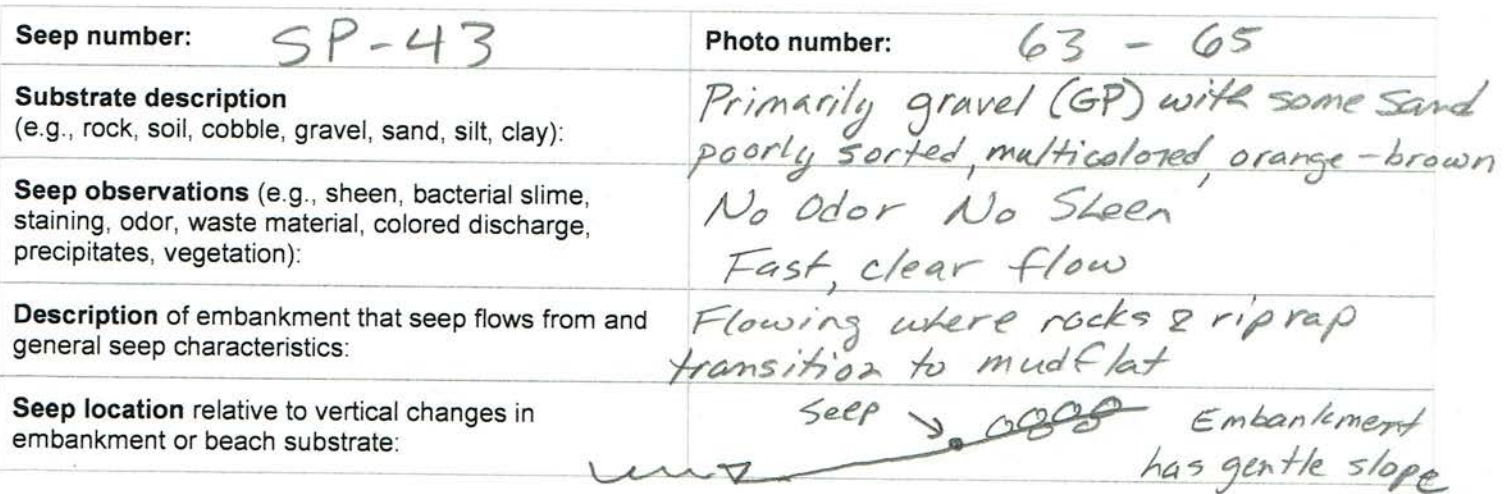 Seep number: SP-43 Photo number: 63 - 65
Substrate description
(e.g., rock, soil, cobble, gravel, sand, silt, clay):
Primarily gravel (GP) with some sand
poorly sorted, multicolored, orange-brown
Seep observations (e.g., sheen, bacterial slime,
staining, odor, waste material, colored discharge,
precipitates, vegetation):
No Odor No Sheen
Fast, clear flow
Description of embankment that seep flows from and
general seep characteristics:
Flowing where rocks & riprap
transition to mudflat
Seep location relative to vertical changes in
embankment or beach substrate:
Seep
Embankment
has gentle slope